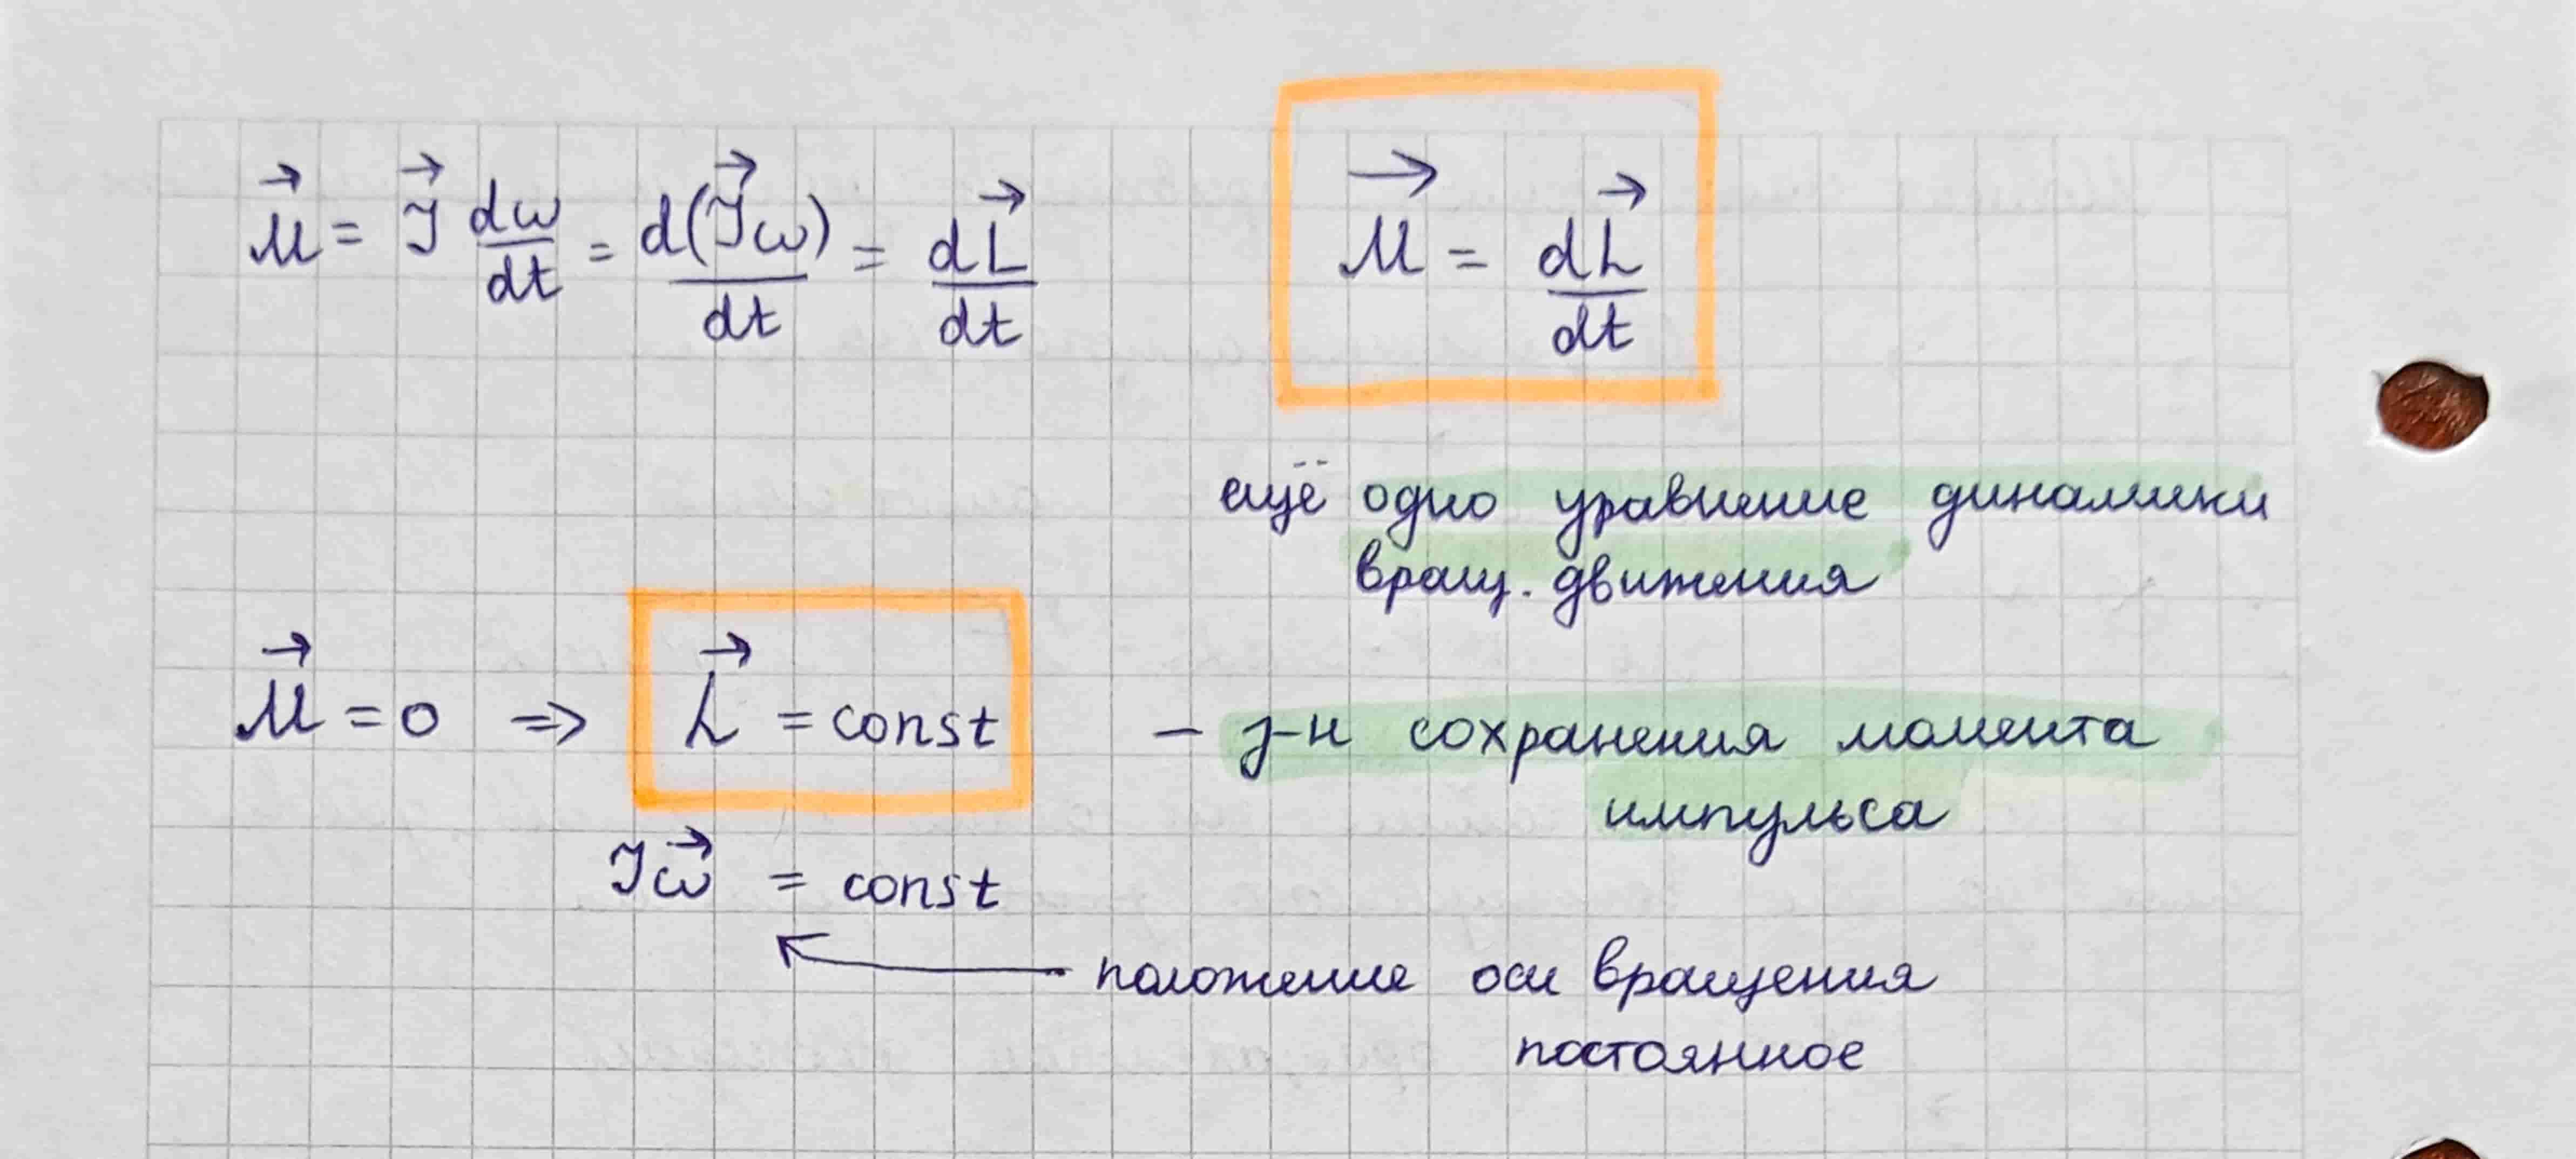 $\vec{M} = \vec{J} \frac{d\omega}{dt} = \frac{d(\vec{J}\omega)}{dt} = \frac{d\vec{L}}{dt}$
$\vec{M} = \frac{d\vec{L}}{dt}$
ещё одно уравнение динамики
вращ. движения
$\vec{M} = 0 \Rightarrow \vec{L} = const$ – з-н сохранения момента
импульса
$J\vec{\omega} = const$
положение оси вращения
постоянное